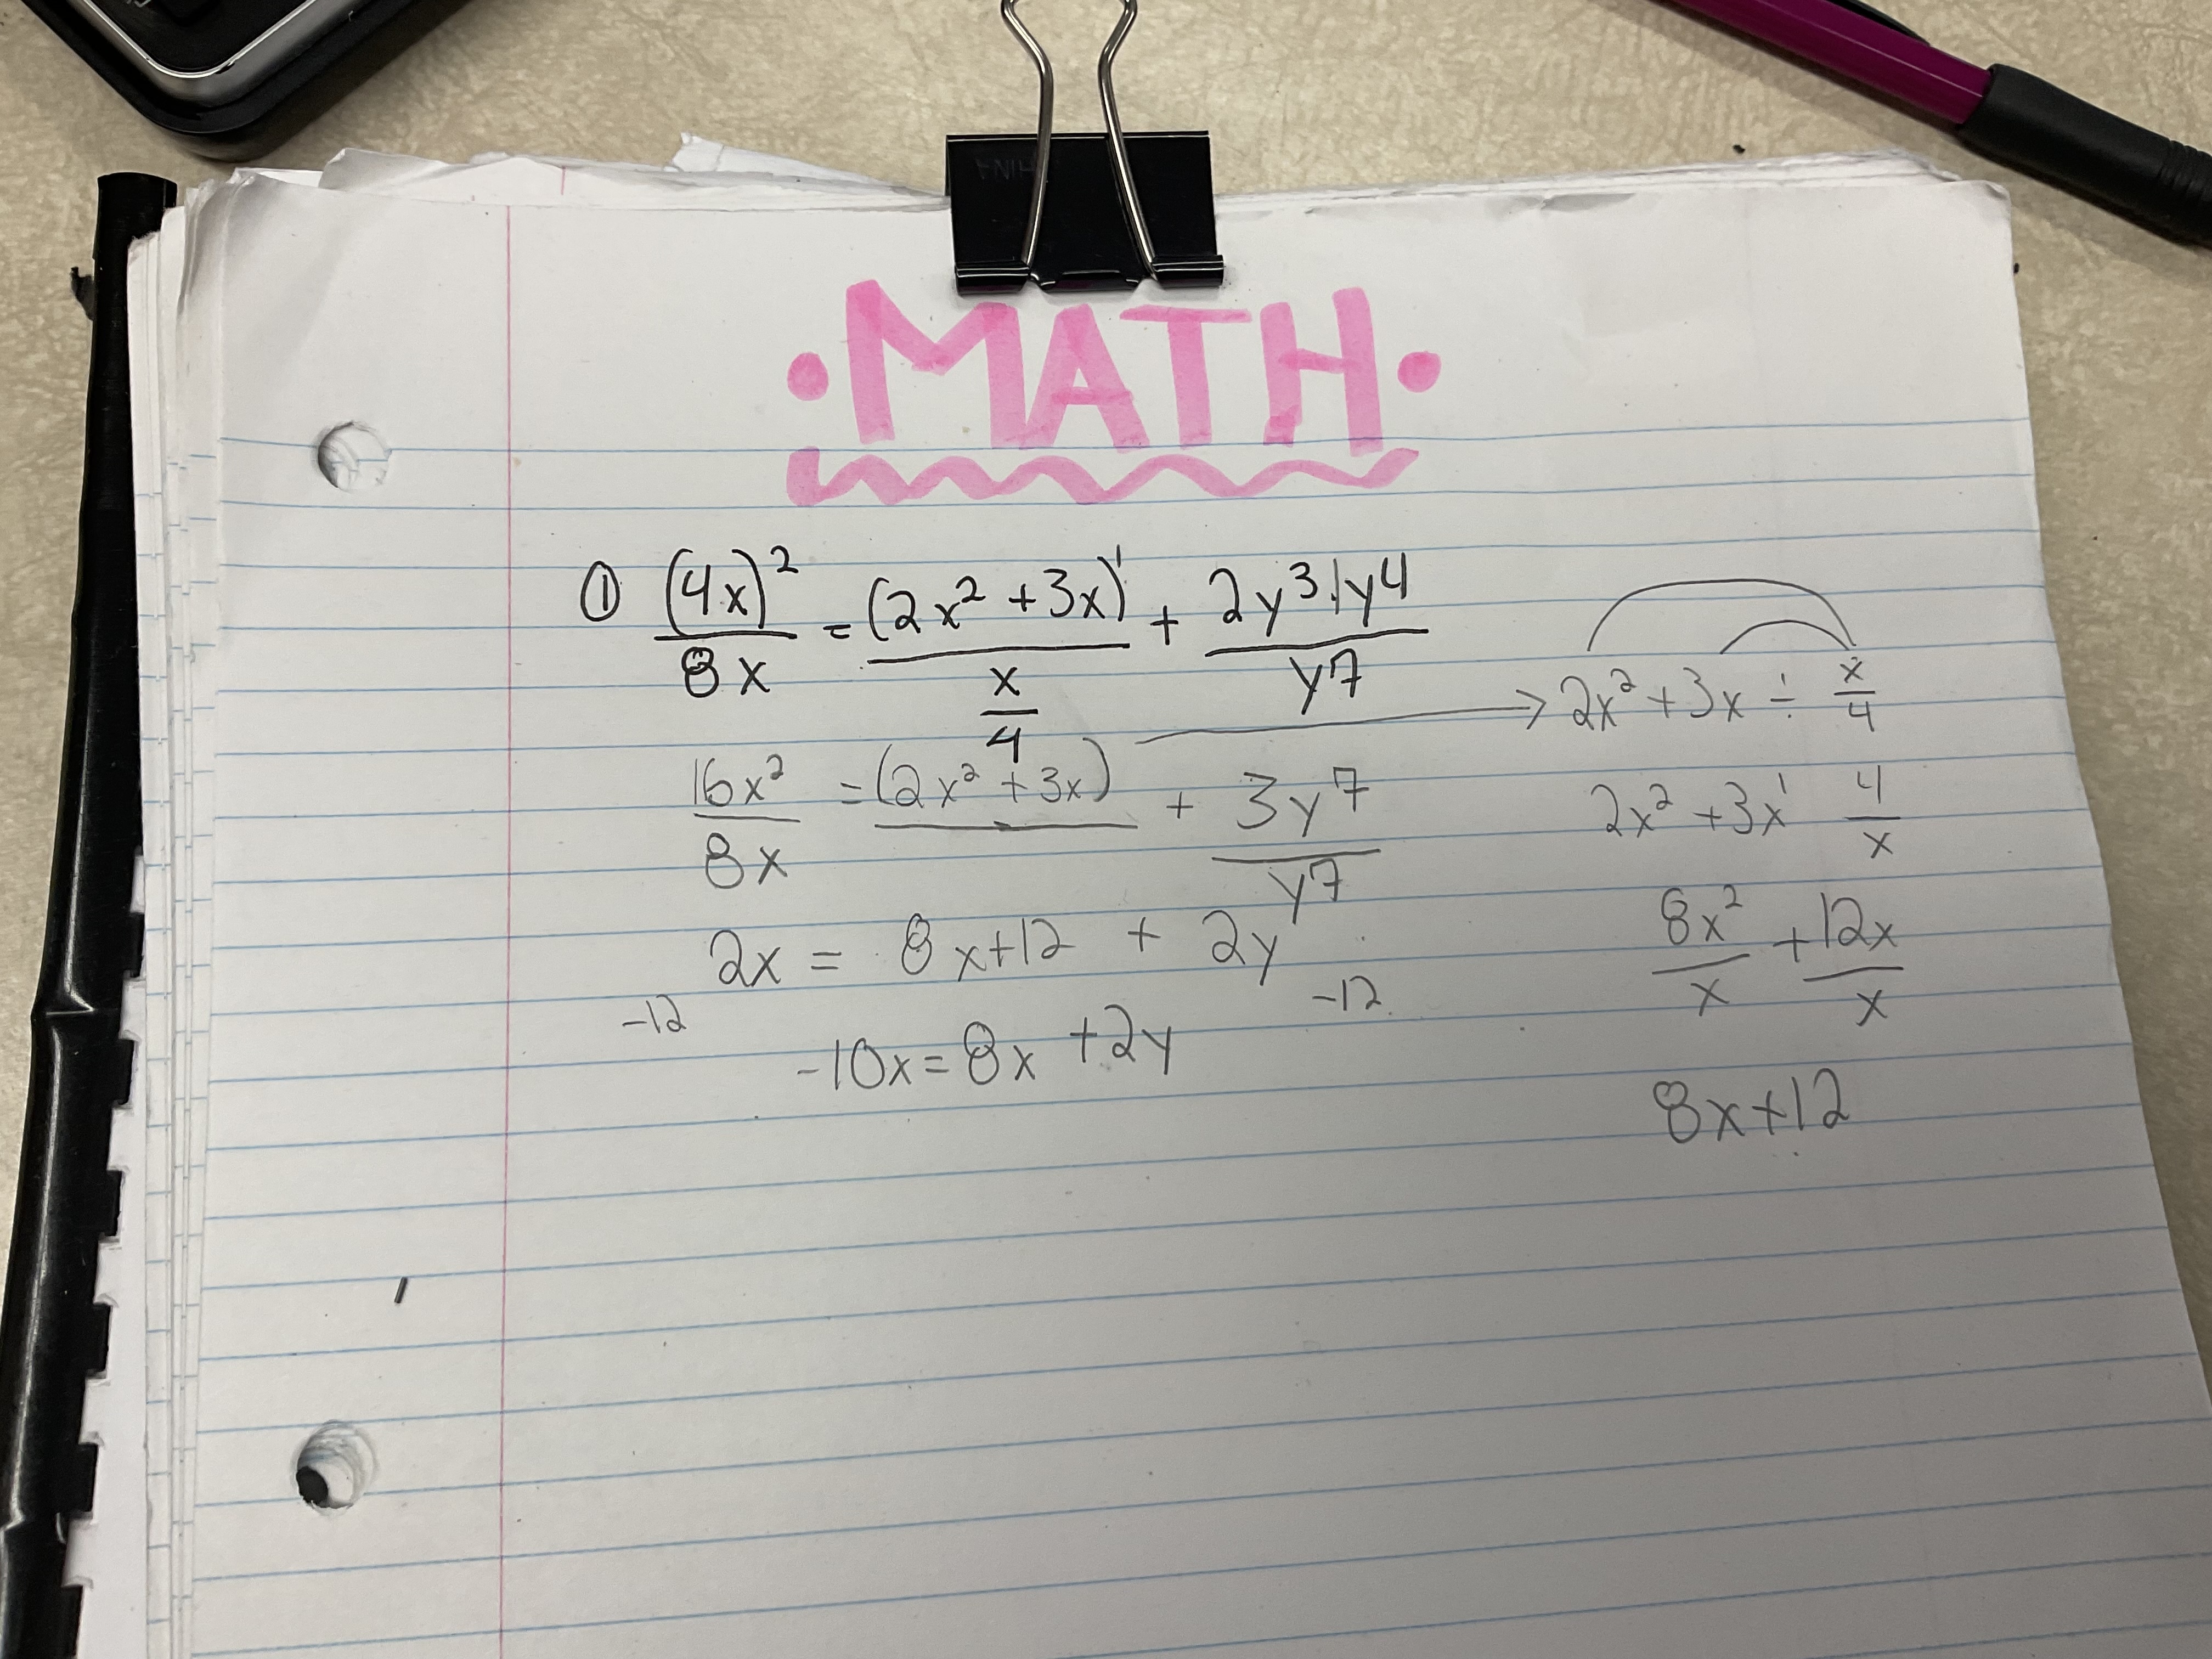 ·MATH·
① (4x)²/8x = (2x² + 3x)¹/(x/4) + 2y³·1y⁴/y7
16x²/8x = (2x² + 3x)/ + 3y⁷/y7
2x = 8x+12 + 2y
-12 -12
-10x = 8x + 2y
2x² + 3x ÷ x/4
2x² + 3x¹ 4/x
8x²/x + 12x/x
8x+12